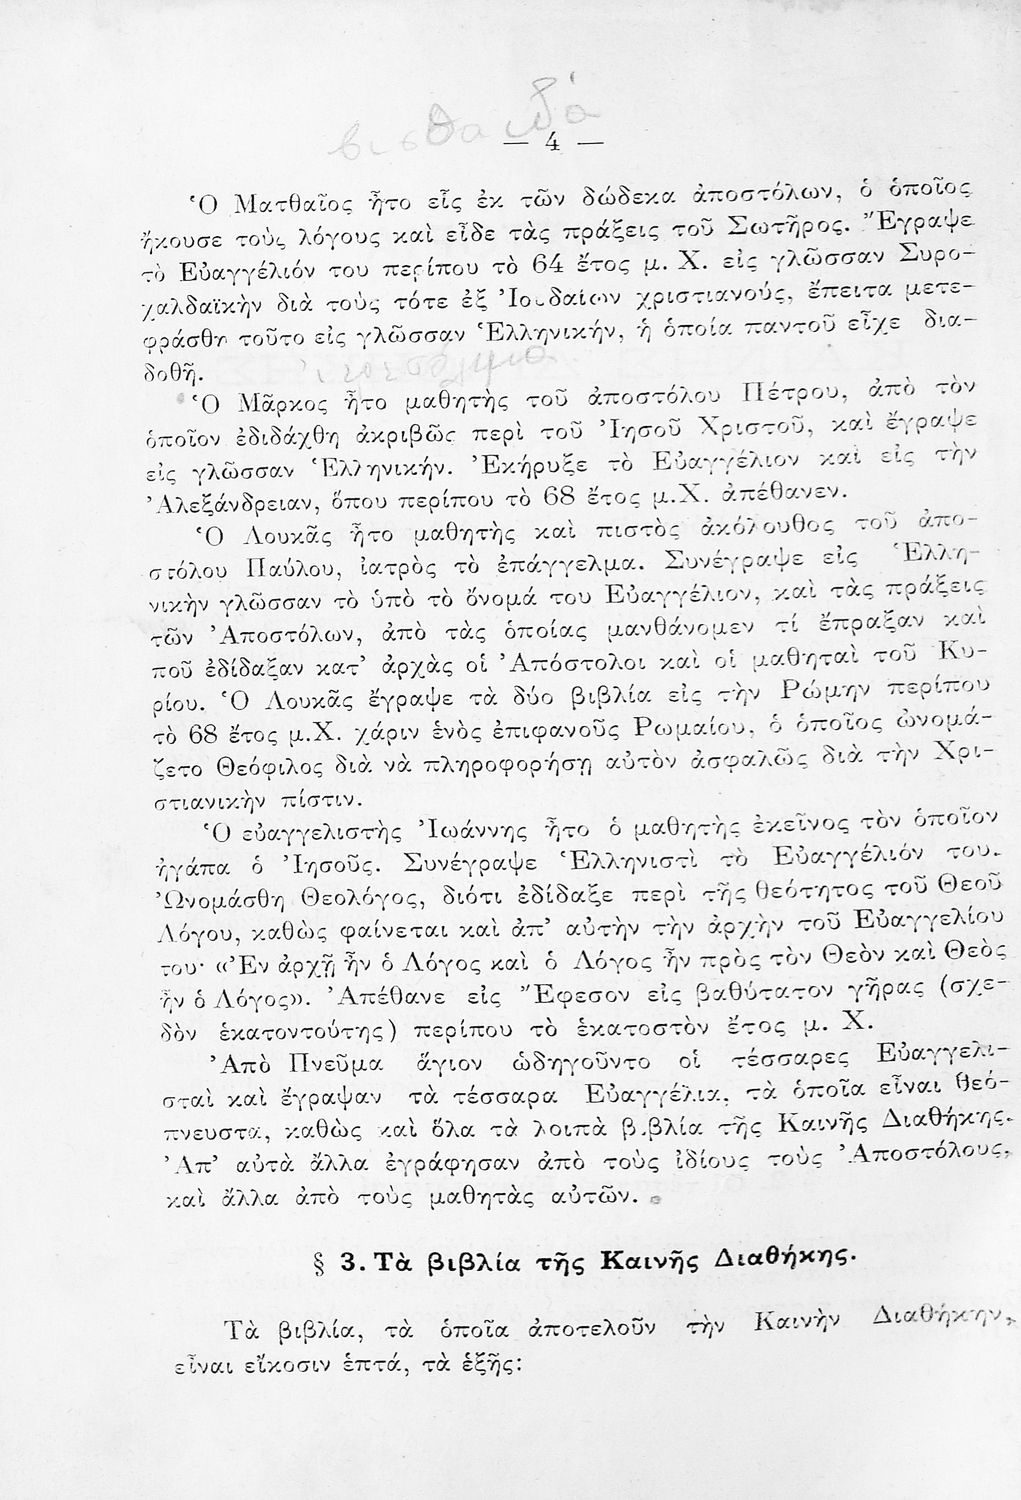 — 4 —
Ὁ Ματθαῖος ἦτο εἷς ἐκ τῶν δώδεκα ἀποστόλων, ὁ ὁποῖος
ἤκουσε τοὺς λόγους καὶ εἶδε τὰς πράξεις τοῦ Σωτῆρος. Ἔγραψε
τὸ Εὐαγγέλιόν του περίπου τὸ 64 ἔτος μ. Χ. εἰς γλῶσσαν Συρο-
χαλδαϊκὴν διὰ τοὺς τότε ἐξ Ἰουδαίων χριστιανούς, ἔπειτα μετε-
φράσθη τοῦτο εἰς γλῶσσαν Ἑλληνικήν, ἡ ὁποία παντοῦ εἶχε δια-
δοθῆ.
Ὁ Μᾶρκος ἦτο μαθητὴς τοῦ ἀποστόλου Πέτρου, ἀπὸ τὸν
ὁποῖον ἐδιδάχθη ἀκριβῶς περὶ τοῦ Ἰησοῦ Χριστοῦ, καὶ ἔγραψε
εἰς γλῶσσαν Ἑλληνικήν. Ἐκήρυξε τὸ Εὐαγγέλιον καὶ εἰς τὴν
Ἀλεξάνδρειαν, ὅπου περίπου τὸ 68 ἔτος μ.Χ. ἀπέθανεν.
Ὁ Λουκᾶς ἦτο μαθητὴς καὶ πιστὸς ἀκόλουθος τοῦ ἀπο-
στόλου Παύλου, ἰατρὸς τὸ ἐπάγγελμα. Συνέγραψε εἰς Ἑλλη-
νικὴν γλῶσσαν τὸ ὑπὸ τὸ ὄνομά του Εὐαγγέλιον, καὶ τὰς πράξεις
τῶν Ἀποστόλων, ἀπὸ τὰς ὁποίας μανθάνομεν τί ἔπραξαν καὶ
ποῦ ἐδίδαξαν κατ' ἀρχὰς οἱ Ἀπόστολοι καὶ οἱ μαθηταὶ τοῦ Κυ-
ρίου. Ὁ Λουκᾶς ἔγραψε τὰ δύο βιβλία εἰς τὴν Ρώμην περίπου
τὸ 68 ἔτος μ.Χ. χάριν ἑνὸς ἐπιφανοῦς Ρωμαίου, ὁ ὁποῖος ὠνομά-
ζετο Θεόφιλος διὰ νὰ πληροφορήσῃ αὐτὸν ἀσφαλῶς διὰ τὴν Χρι-
στιανικὴν πίστιν.
Ὁ εὐαγγελιστὴς Ἰωάννης ἦτο ὁ μαθητὴς ἐκεῖνος τὸν ὁποῖον
ἠγάπα ὁ Ἰησοῦς. Συνέγραψε Ἑλληνιστὶ τὸ Εὐαγγέλιόν του.
Ὠνομάσθη Θεολόγος, διότι ἐδίδαξε περὶ τῆς θεότητος τοῦ Θεοῦ
Λόγου, καθὼς φαίνεται καὶ ἀπ' αὐτὴν τὴν ἀρχὴν τοῦ Εὐαγγελίου
του· «Ἐν ἀρχῇ ἦν ὁ Λόγος καὶ ὁ Λόγος ἦν πρὸς τὸν Θεὸν καὶ Θεὸς
ἦν ὁ Λόγος». Ἀπέθανε εἰς Ἔφεσον εἰς βαθύτατον γῆρας (σχε-
δὸν ἑκατοντούτης) περίπου τὸ ἑκατοστὸν ἔτος μ. Χ.
Ἀπὸ Πνεῦμα ἅγιον ὡδηγοῦντο οἱ τέσσαρες Εὐαγγελι-
σταὶ καὶ ἔγραψαν τὰ τέσσαρα Εὐαγγέλια, τὰ ὁποῖα εἶναι θεό-
πνευστα, καθὼς καὶ ὅλα τὰ λοιπὰ βιβλία τῆς Καινῆς Διαθήκης.
Ἀπ' αὐτὰ ἄλλα ἐγράφησαν ἀπὸ τοὺς ἰδίους τοὺς Ἀποστόλους,
καὶ ἄλλα ἀπὸ τοὺς μαθητὰς αὐτῶν.
§ 3. Τὰ βιβλία τῆς Καινῆς Διαθήκης.
Τὰ βιβλία, τὰ ὁποῖα ἀποτελοῦν τὴν Καινὴν Διαθήκην,
εἶναι εἴκοσιν ἑπτά, τὰ ἑξῆς: